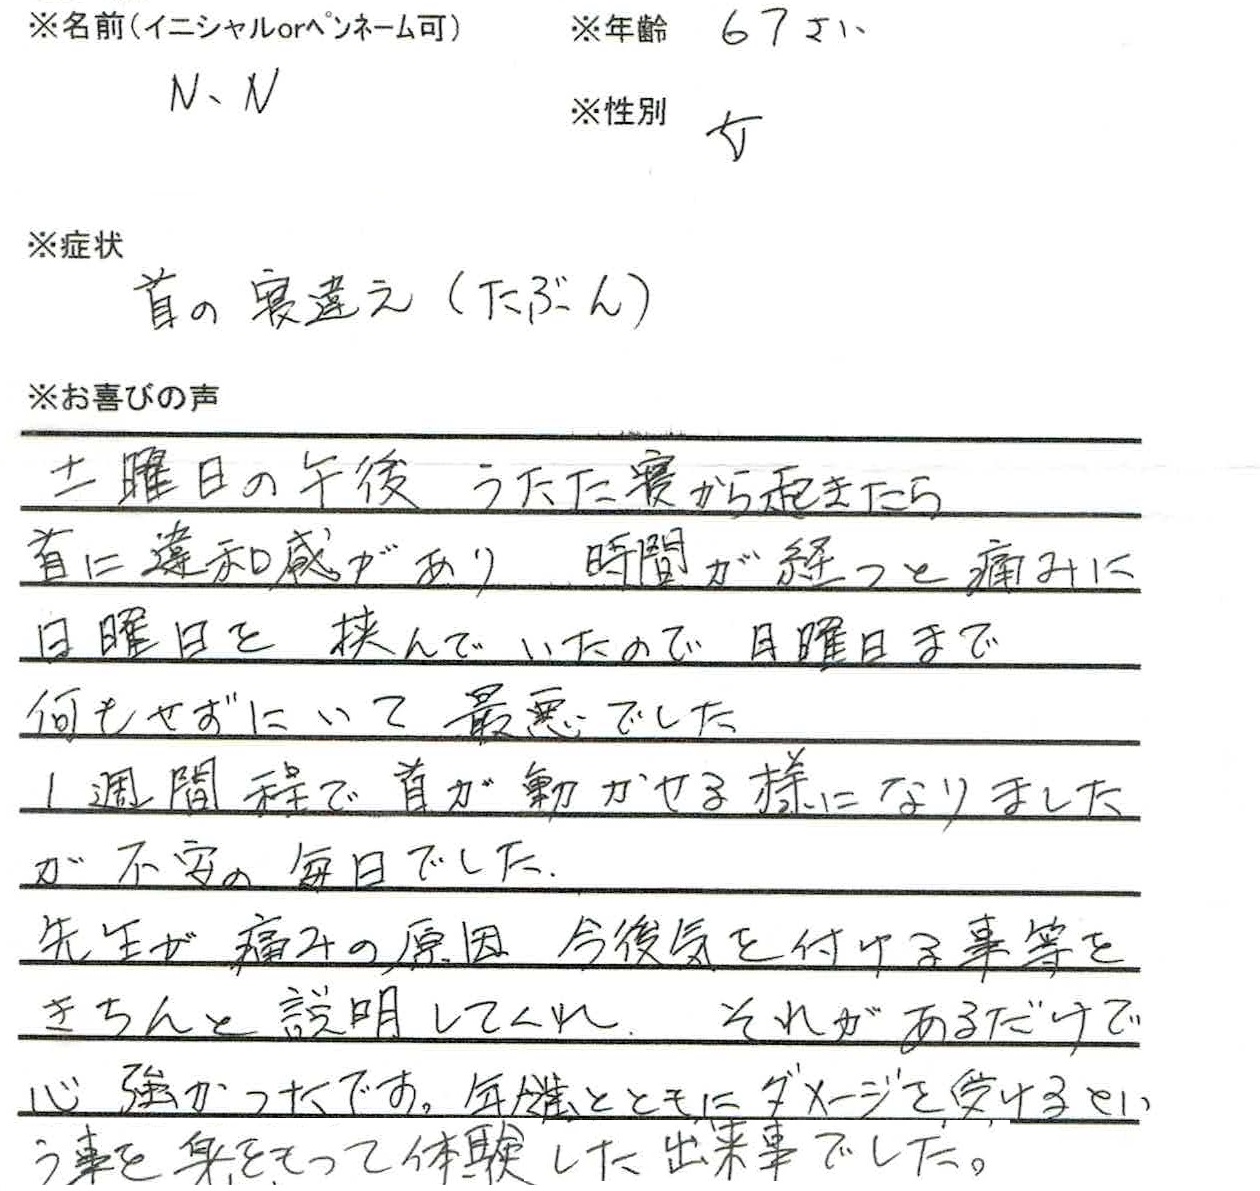 ※名前(イニシャルorペンネーム可)
N、N
※年齢 67さい
※性別 女
※症状
首の寝違え(たぶん)
※お喜びの声
土曜日の午後 うたた寝から起きたら
首に違和感があり 時間が経つと痛みに
日曜日を挟んでいたので 月曜日まで
何もせずにいて 最悪でした
1週間程で首が動かせる様になりました
が不安の毎日でした.
先生が痛みの原因 今後気を付ける事等を
きちんと説明してくれ. それがあるだけで
心強かったです。年齢とともにダメージを受けるとい
う事を身をもって体験した出来事でした。